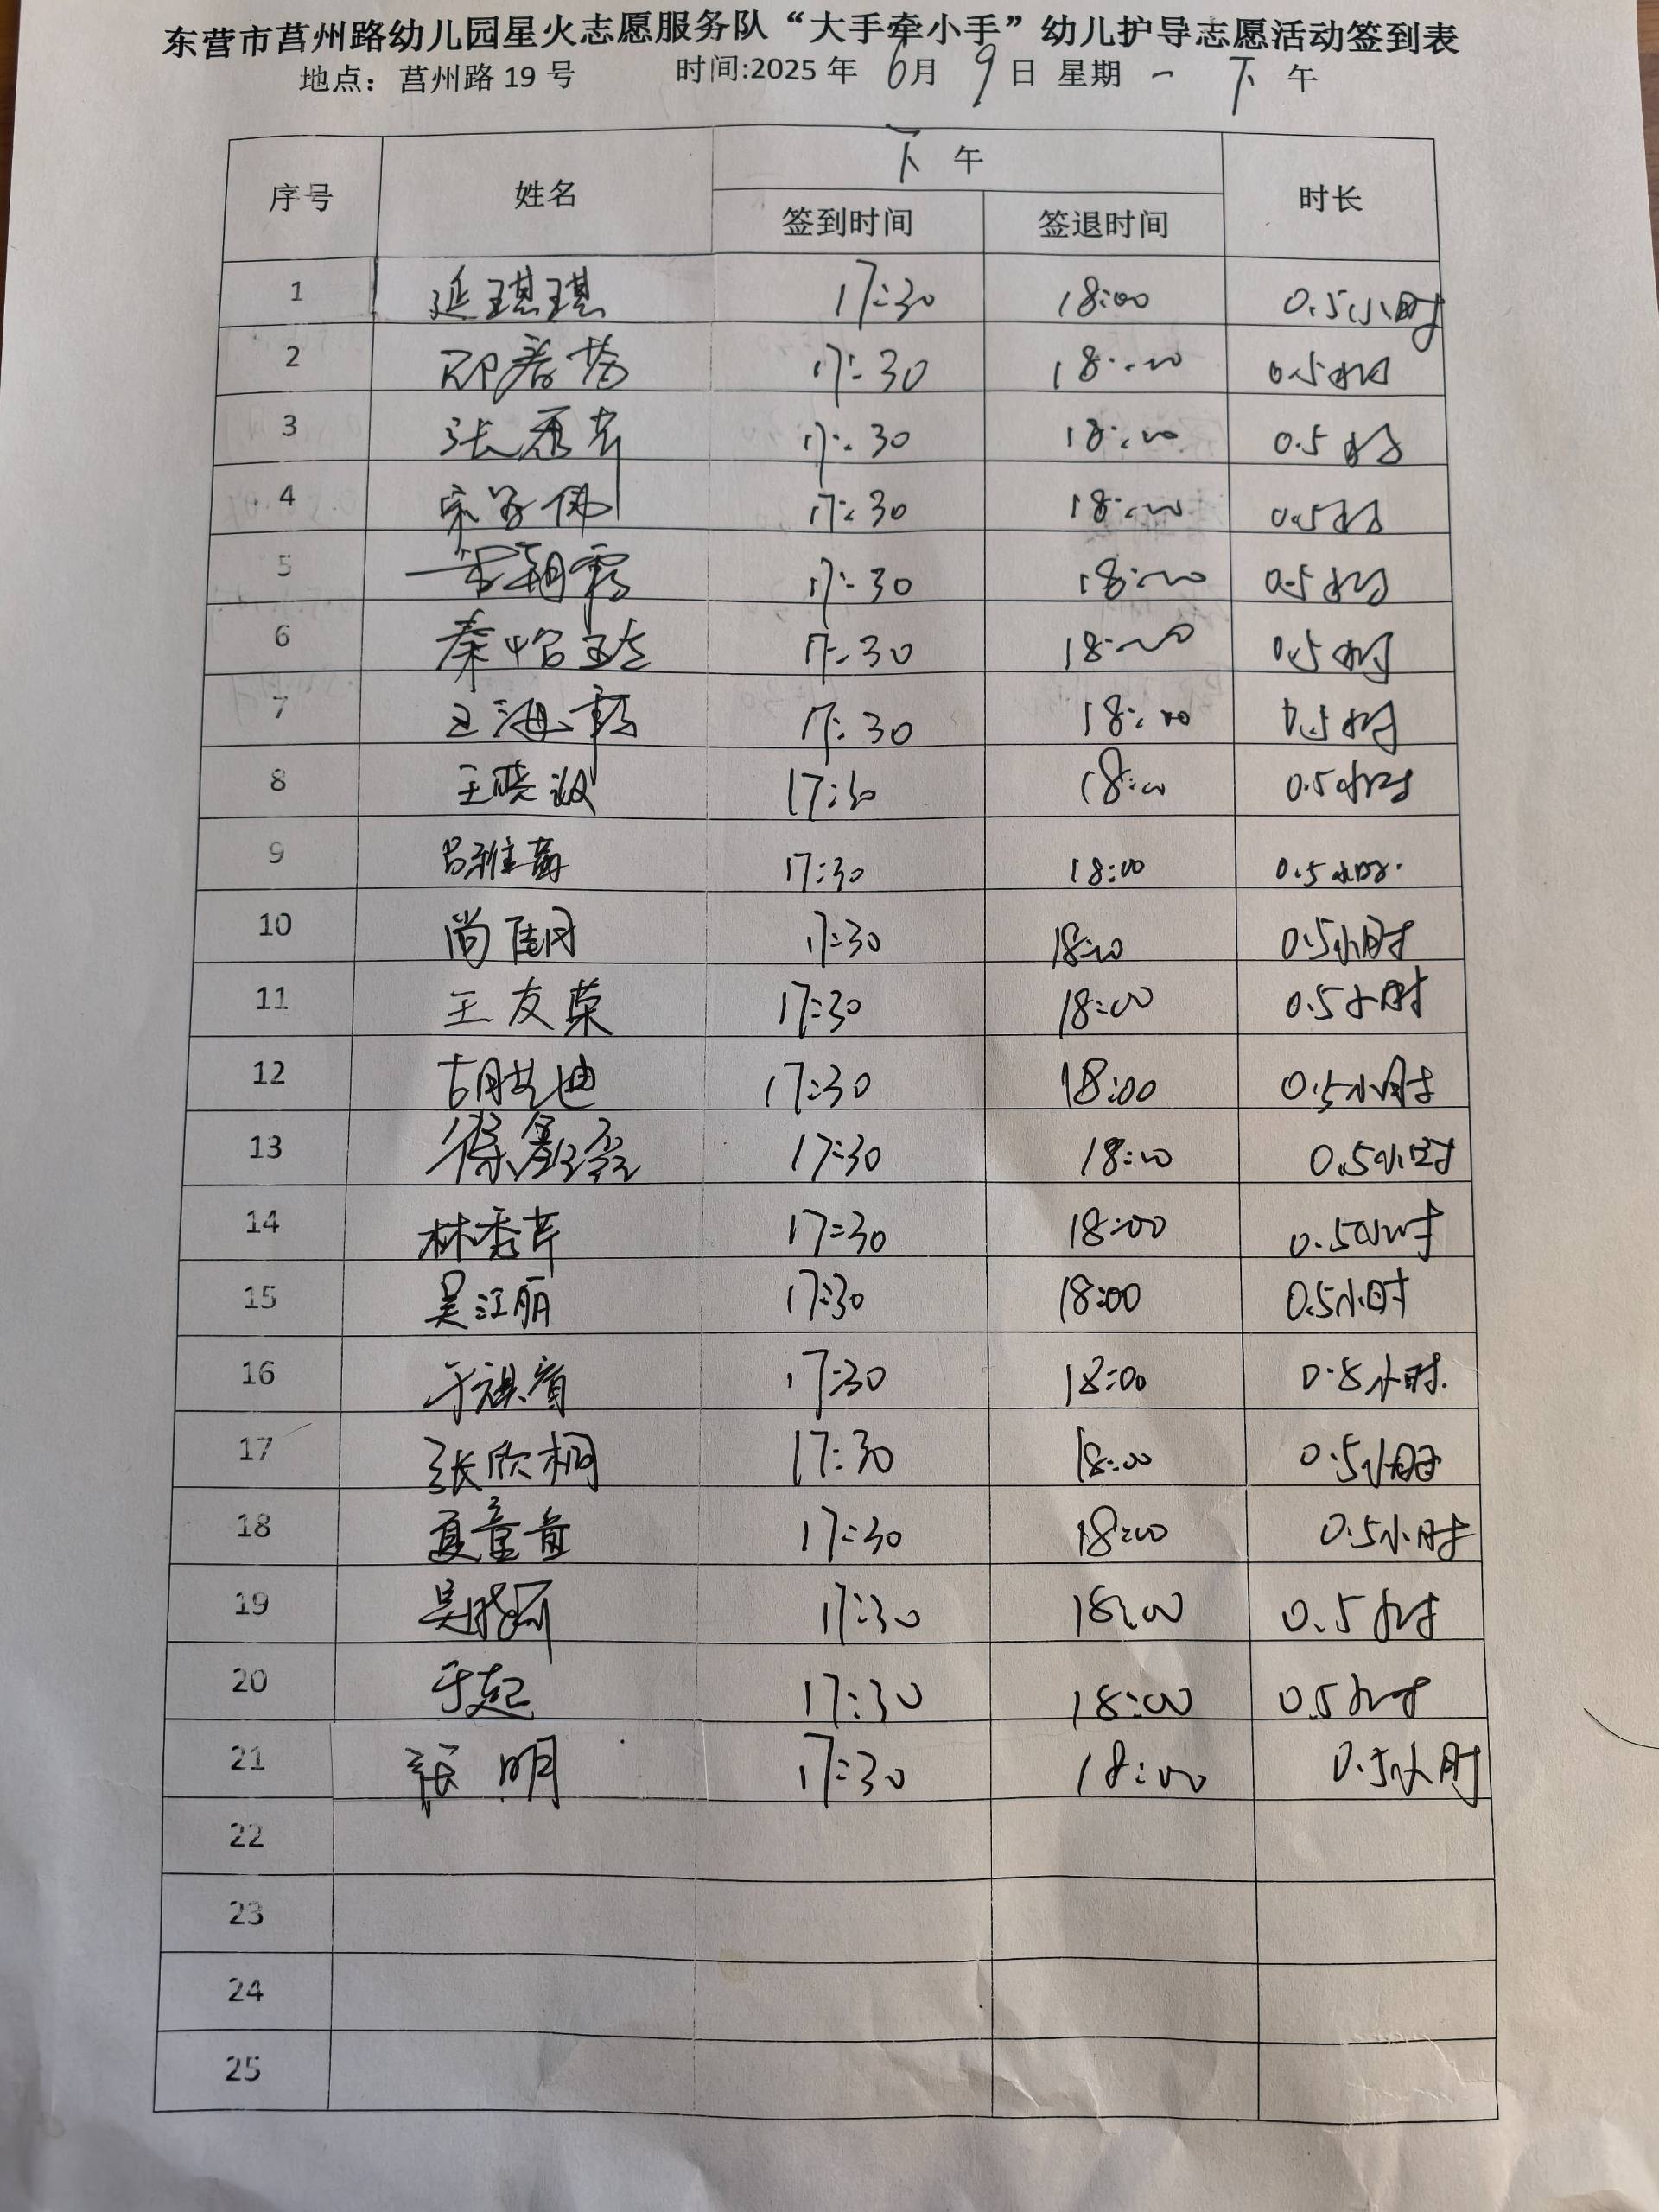 东营市莒州路幼儿园星火志愿服务队“大手牵小手”幼儿护导志愿活动签到表
地点：莒州路 19 号 时间:2025 年 6月 9日 星期 一 下 午
序号 姓名 下 午 时长
签到时间 签退时间
1 延琪琪 17:30 18:00 0.5小时
2 17:30 18:00 0.5小时
3 张秀芹 17:30 18:00 0.5小时
4 17:30 18:00 0.5小时
5 17:30 18:00 0.5小时
6 秦怡 17:30 18:00 0.5小时
7 王海 17:30 18:00 0.5小时
8 王晓 17:30 18:00 0.5小时
9 吕雅 17:30 18:00 0.5小时
10 尚佳月 17:30 18:00 0.5小时
11 王友荣 17:30 18:00 0.5小时
12 胡 迪 17:30 18:00 0.5小时
13 徐 17:30 18:00 0.5小时
14 林秀芹 17:30 18:00 0.5小时
15 吴江丽 17:30 18:00 0.5小时
16 于祺 17:30 18:00 0.5小时
17 张欣桐 17:30 18:00 0.5小时
18 夏童 17:30 18:00 0.5小时
19 吴晓 17:30 18:00 0.5小时
20 于起 17:30 18:00 0.5小时
21 张明 17:30 18:00 0.5小时
22
23
24
25